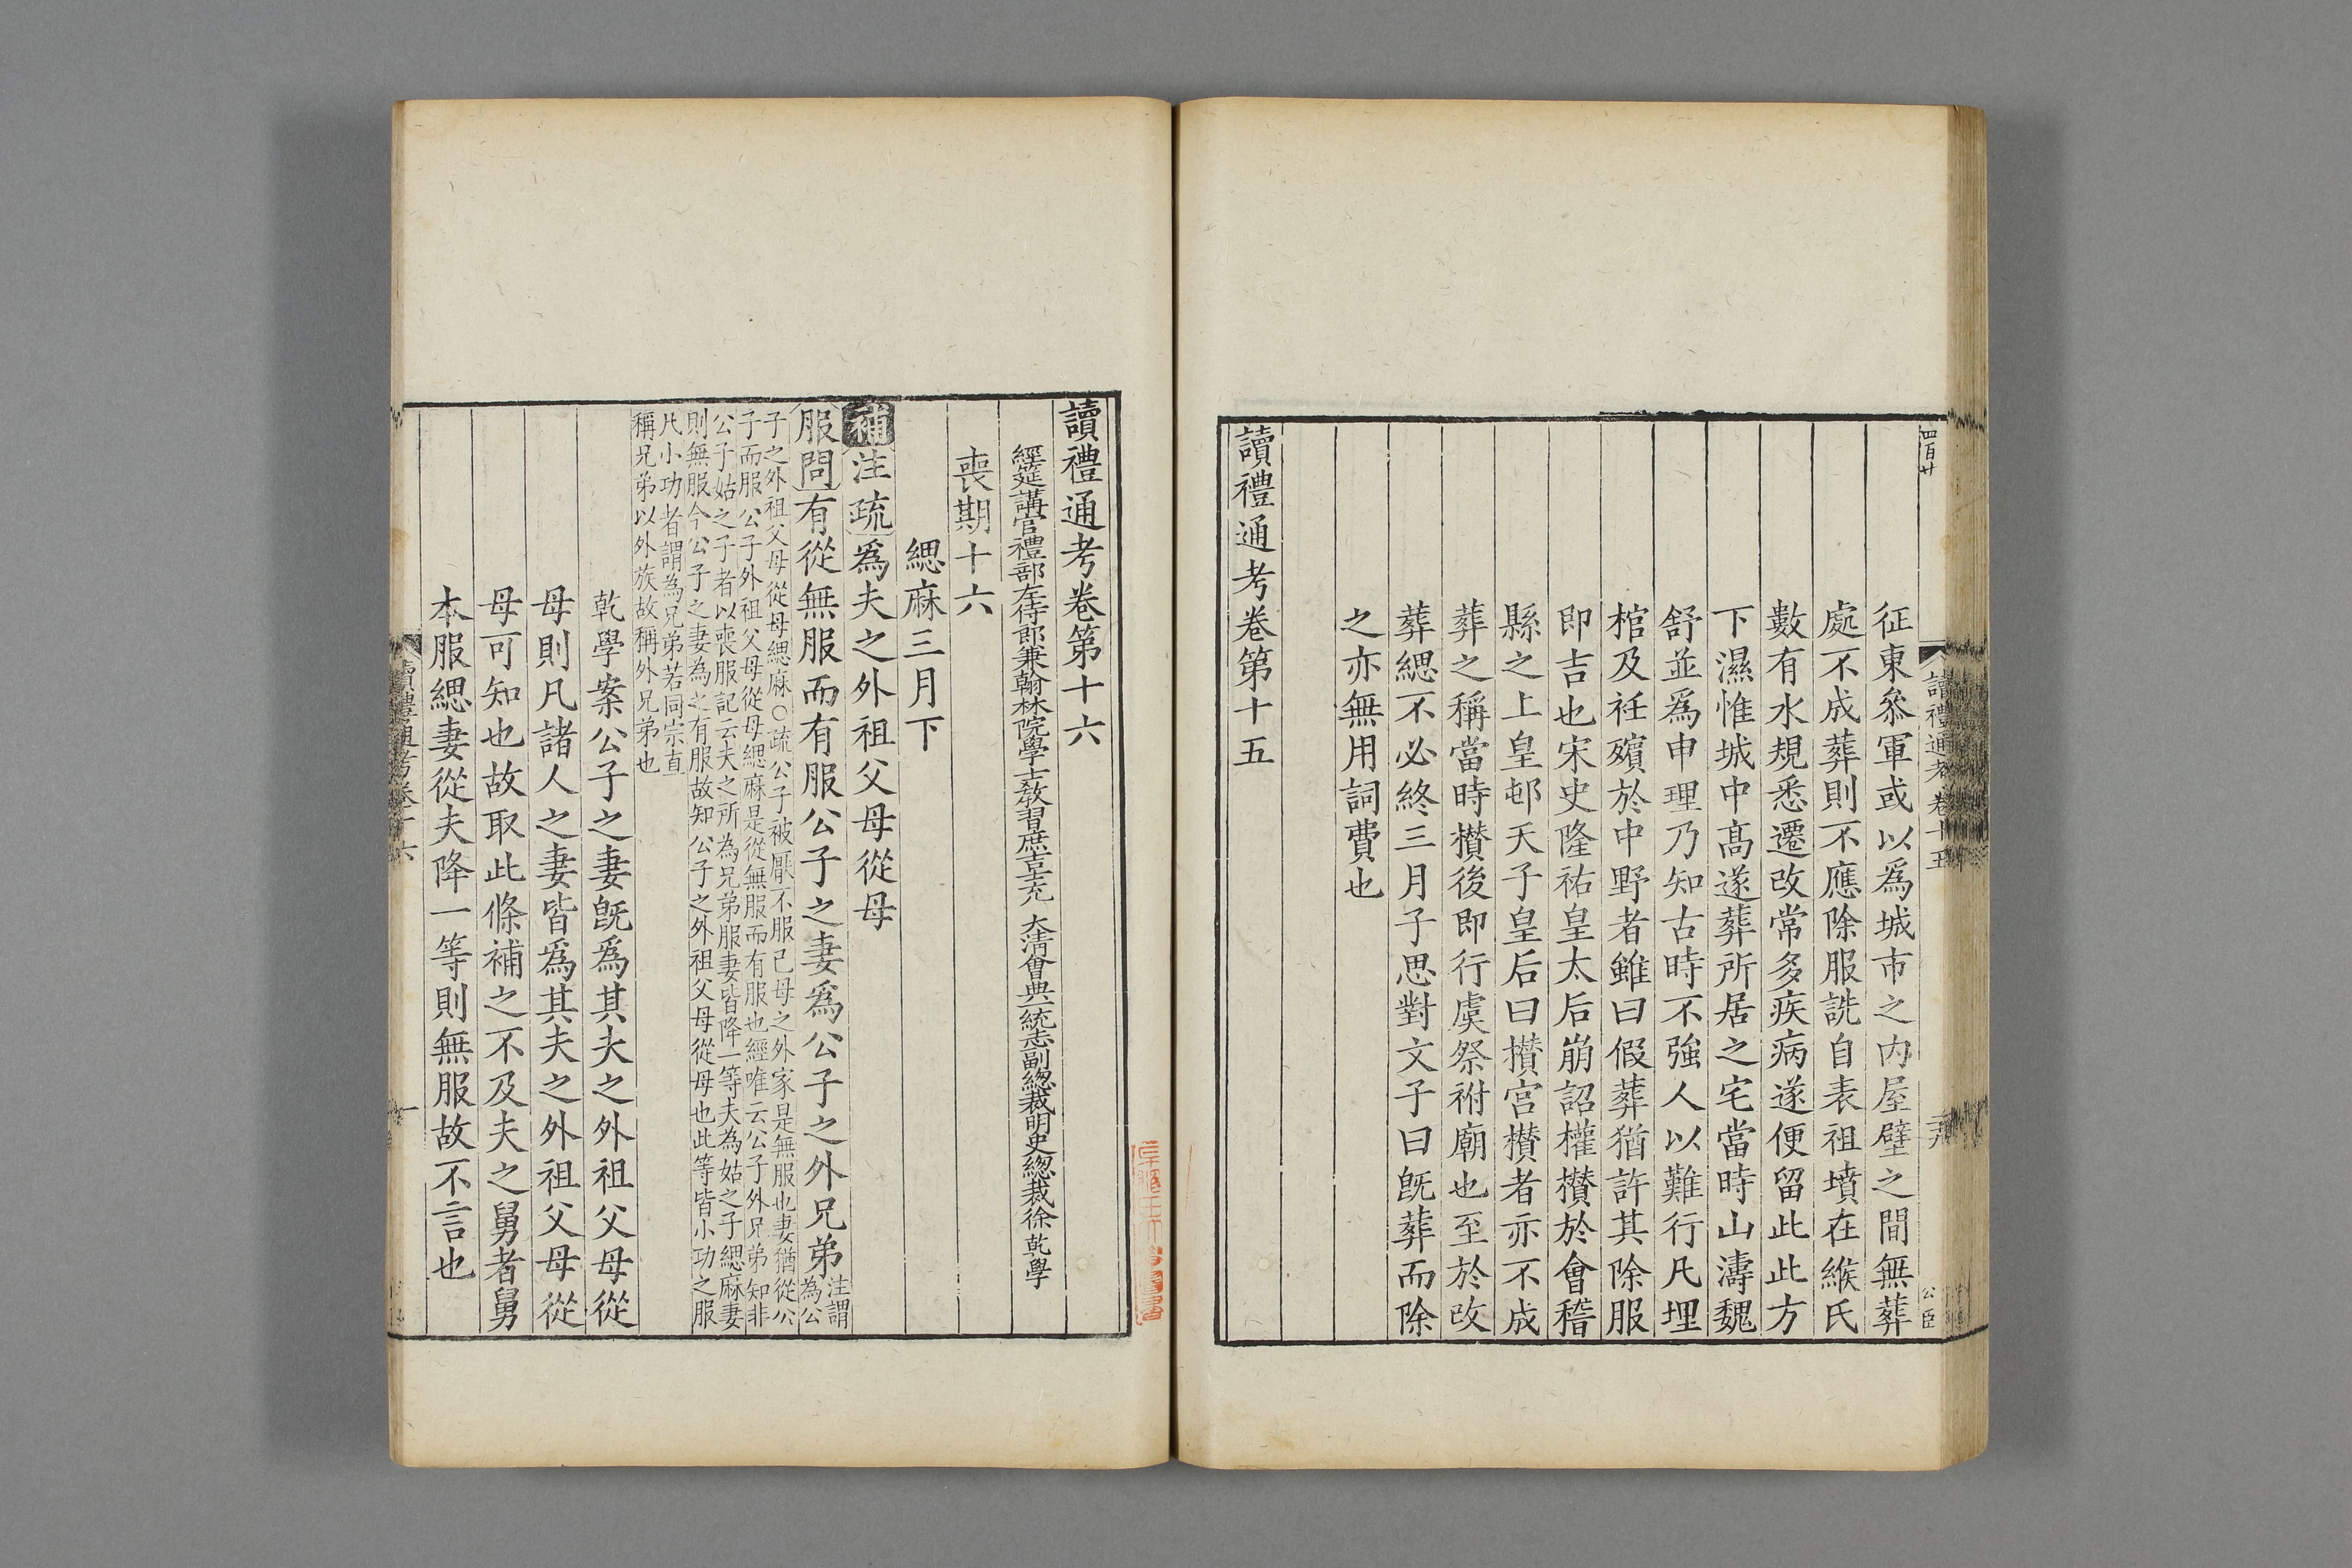 四百廿
讀禮通考卷十五
公臣
征東叅軍或以爲城市之内屋壁之間無葬
處不成葬則不應除服詵自表祖墳在緱氏
數有水規悉遷改常多疾病遂便留此此方
下濕惟城中髙遂葬所居之宅當時山濤魏
舒並爲申理乃知古時不強人以難行凡埋
棺及衽殯於中野者雖曰假葬猶許其除服
即吉也宋史隆祐皇太后崩詔權攅於會稽
縣之上皇邨天子皇后曰攅宫攅者亦不成
葬之稱當時攅後即行虞祭祔廟也至於改
葬緦不必終三月子思對文子曰旣葬而除
之亦無用詞費也
讀禮通考卷第十五
讀禮通考卷第十六
經筵講官禮部左侍郎兼翰林院學士敎習庶吉士充 大清會典一統志副總裁明史總裁徐乾學
喪期十六
緦麻三月下
補注疏爲夫之外祖父母從母
服問有從無服而有服公子之妻爲公子之外兄弟注謂為公
子之外祖父母從母緦麻○疏公子被厭不服己母之外家是無服也妻猶從公
子而服公子外祖父母從母緦麻是從無服而有服也經唯云公子外兄弟知非
公子姑之子者以喪服記云夫之所為兄弟服妻皆降一等夫為姑之子緦麻妻
則無服今公子之妻為之有服故知公子之外祖父母從母也此等皆小功之服
凡小功者謂為兄弟若同宗直
稱兄弟以外族故稱外兄弟也
乾學案公子之妻旣爲其夫之外祖父母從
母則凡諸人之妻皆爲其夫之外祖父母從
母可知也故取此條補之不及夫之舅者舅
本服緦妻從夫降一等則無服故不言也
讀禮通考卷十六
一